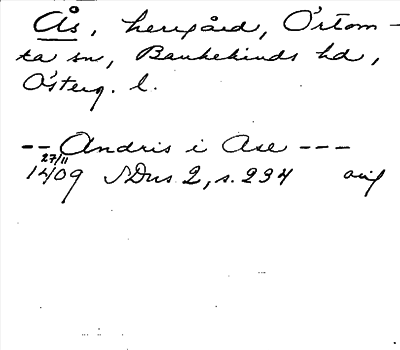 Ås, herrgård, Örtom-
ta sn, Bankekinds hd,
Österg. l.
-- Andris i Ase ---
27/11
1409 SDns 2, s. 234 avs